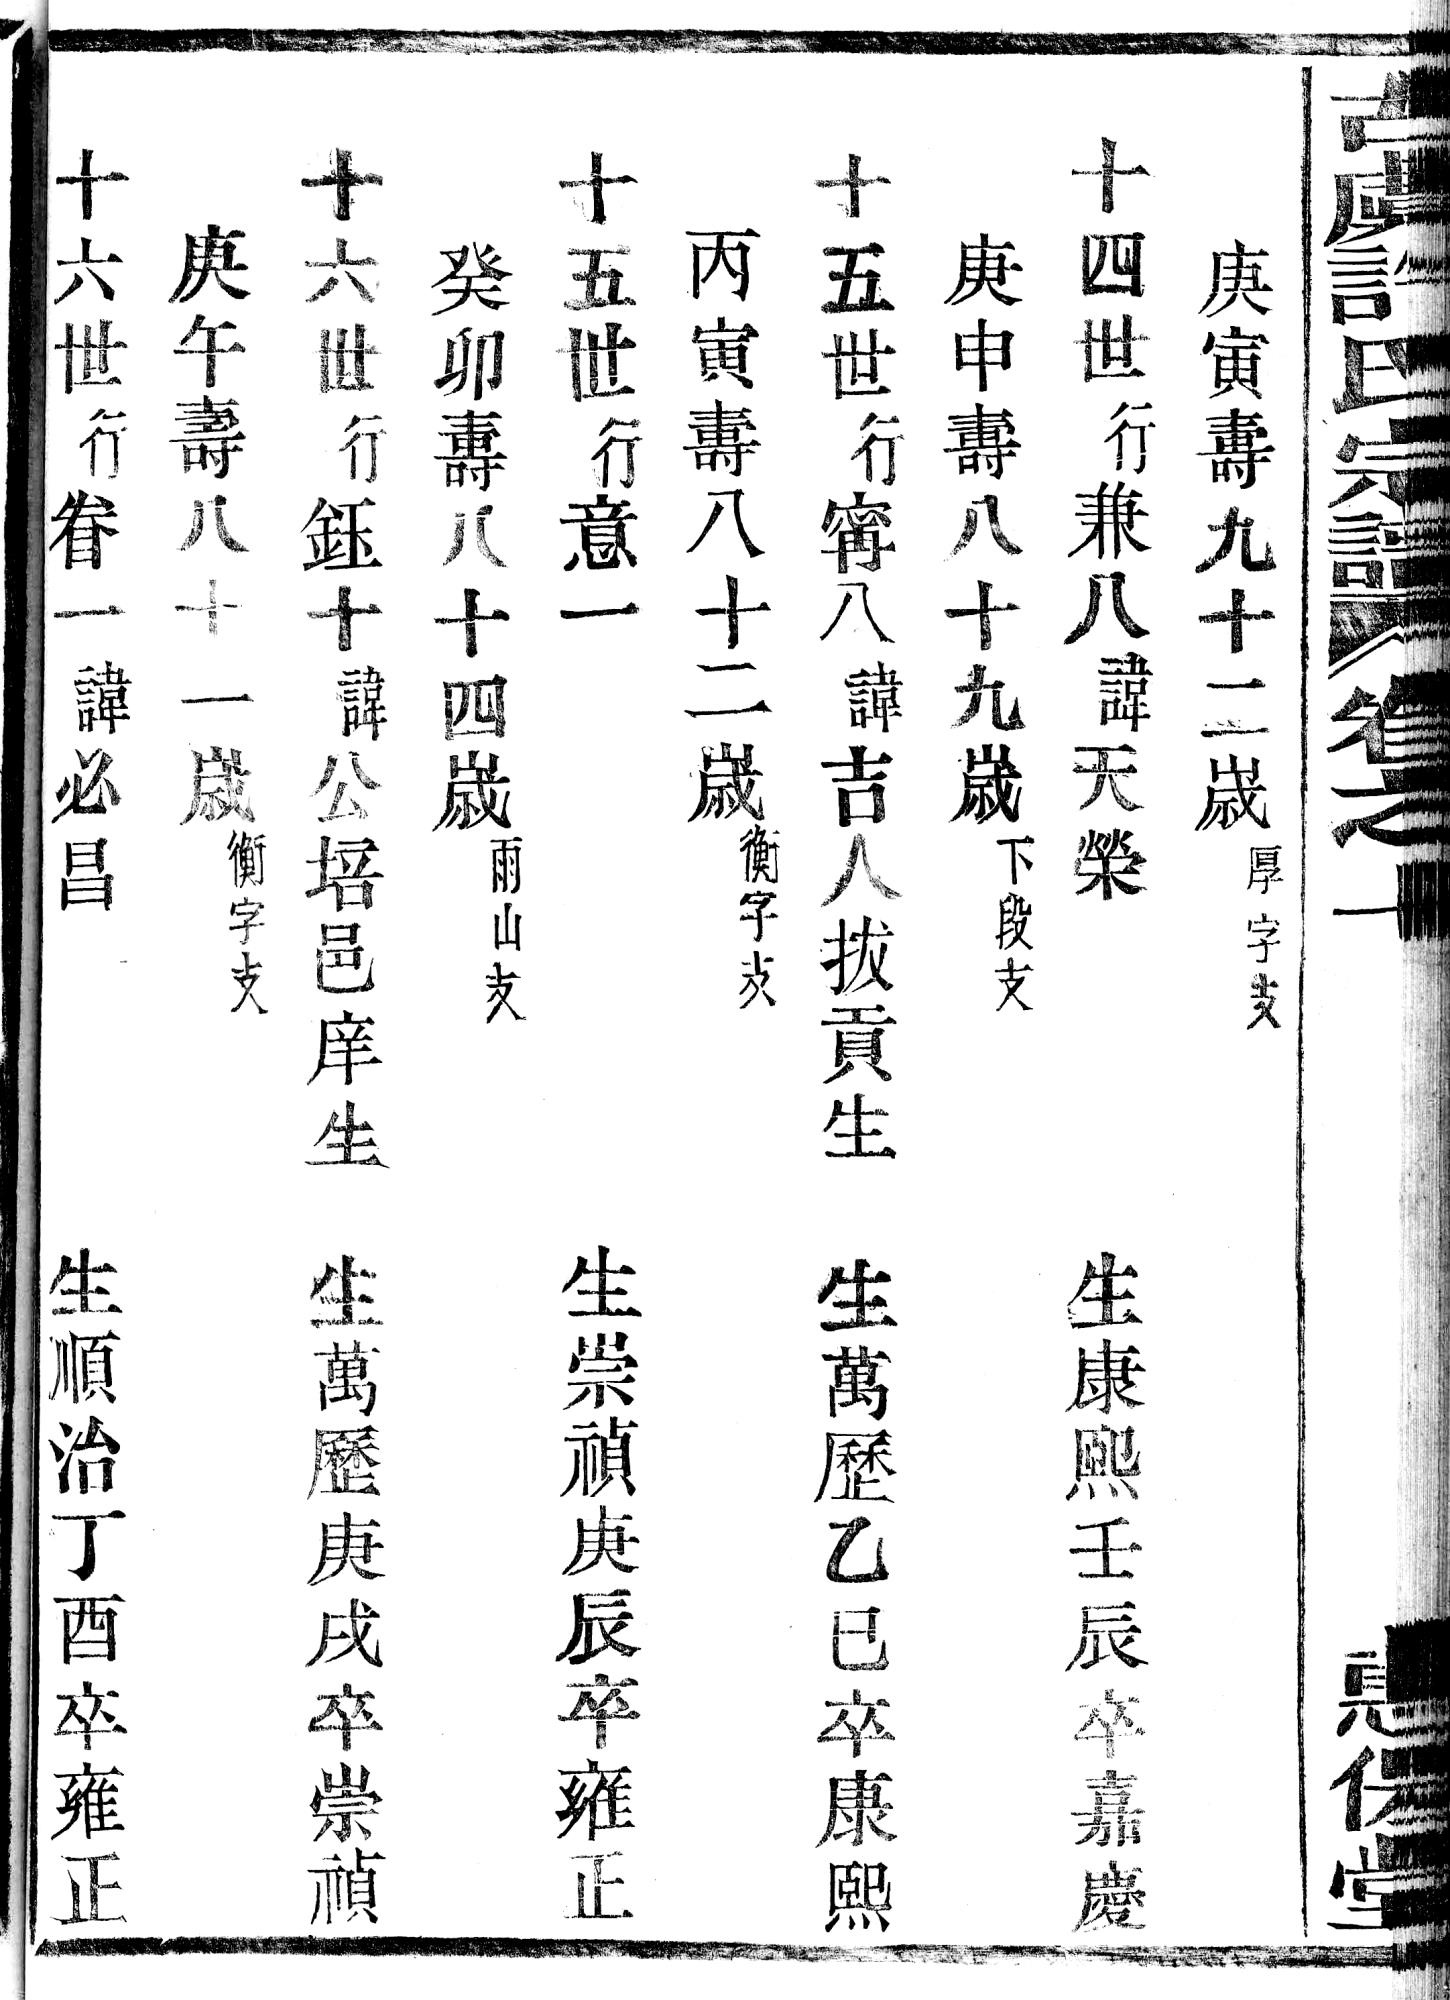 古虞許氏宗譜 卷之一
庚寅壽九十二歲 厚字支
十四世行兼八諱天榮 生康熙壬辰卒嘉慶
庚申壽八十九歲 下段支
十五世行甯八諱吉人拔貢生 生萬歷乙巳卒康熙
丙寅壽八十二歲 衡字支
十五世行意一 生崇禎庚辰卒雍正
癸卯壽八十四歲 雨山支
十六世行鈺十諱公培邑庠生 生萬歷庚戌卒崇禎
庚午壽八十一歲 衡字支
十六世行眷一諱必昌 生順治丁酉卒雍正